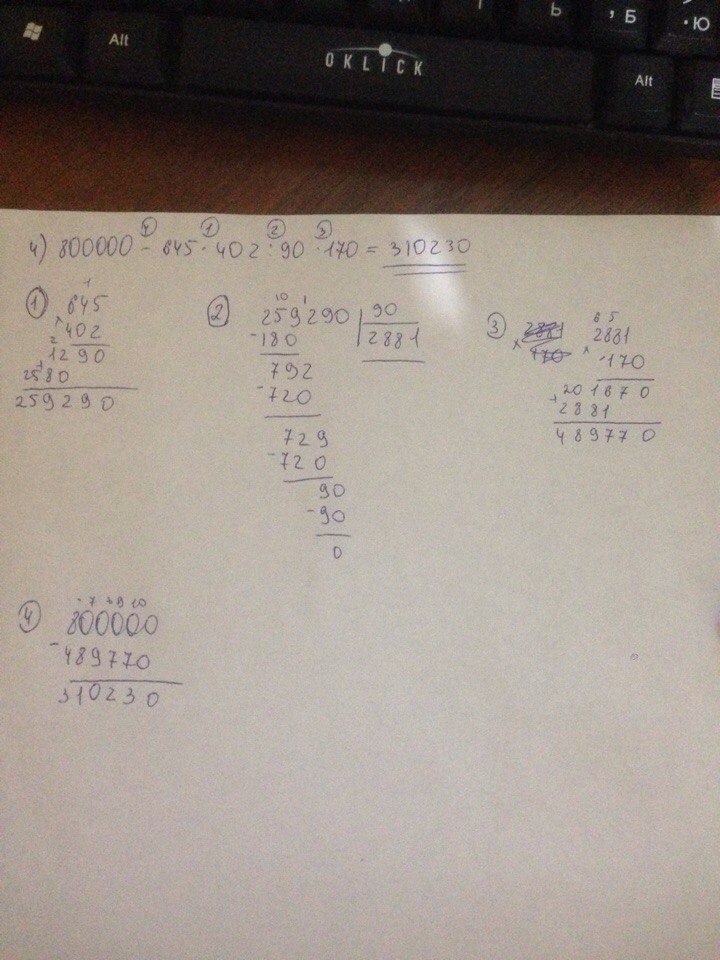 Alt
OKLICK
Ь
, Б
. Ю
Alt
4) 800000 - 645 · 402 : 90 · 170 = 310230
4 1 2 3
1
1
645
× 402
2
1290
1
2580
259290
2
10 1
259290 | 90
2881
-180
792
-720
729
-720
90
-90
0
3
6 5
2881
× 170
201670
+ 2881
489770
4
800000
- 489770
310230